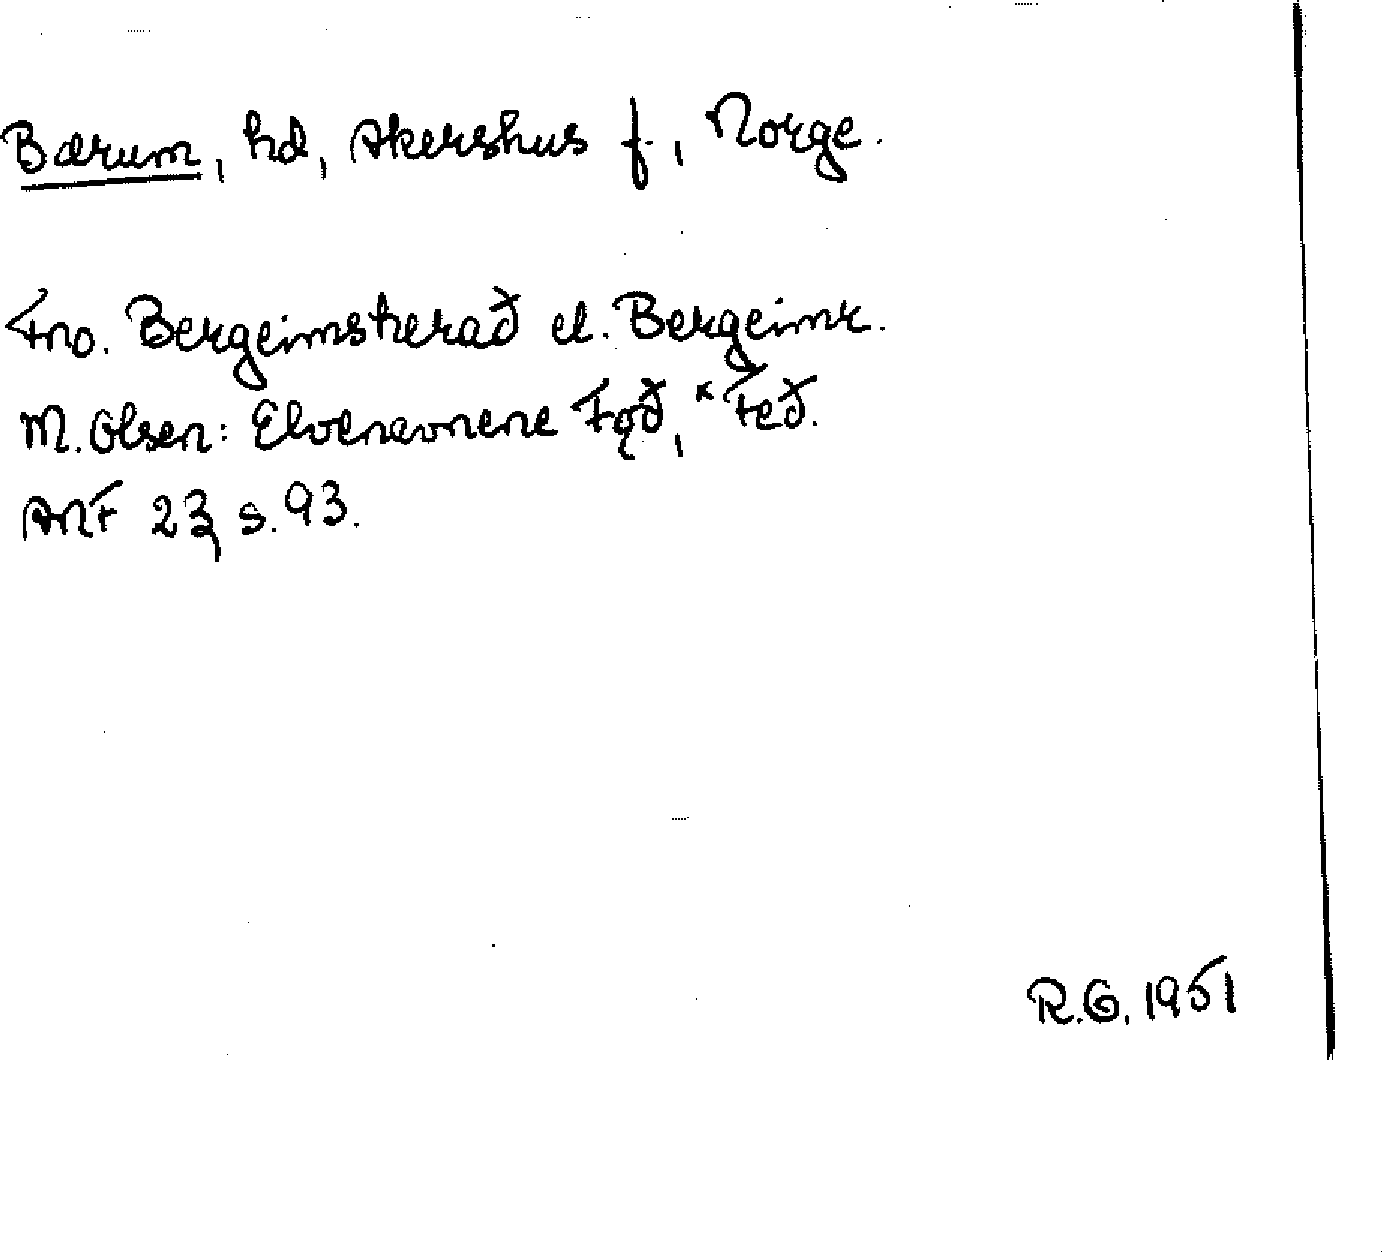 Bærum, hd, Akershus f., Norge.
Fno. Bergeimsherað el. Bergeimr.
M. Olsen: Elvenavnene Fǫð, *Feð.
ANF 23, s. 93.
R.G. 1951